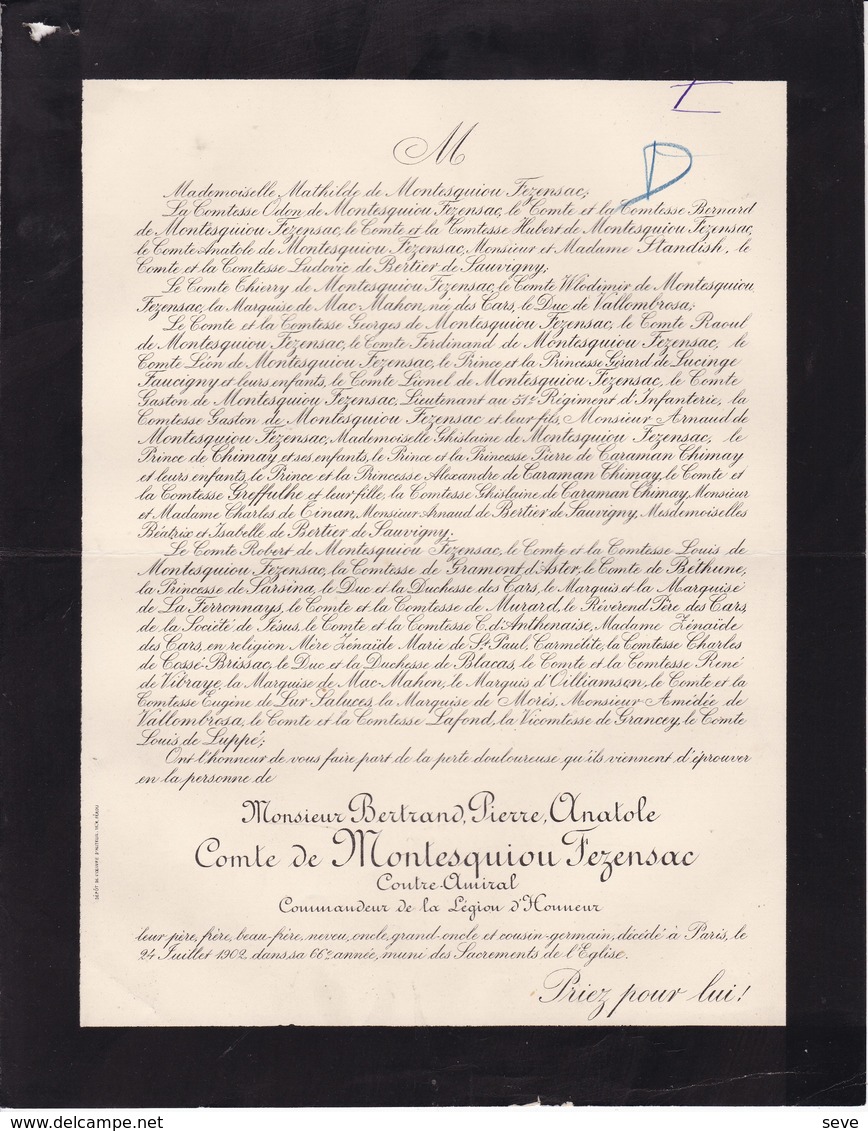 M
D
Mademoiselle Mathilde de Montesquiou Fezensac;
La Comtesse Odon de Montesquiou Fezensac, le Comte et la Comtesse Bernard
de Montesquiou Fezensac, le Comte et la Comtesse Hubert de Montesquiou Fezensac,
le Comte Anatole de Montesquiou Fezensac, Monsieur et Madame Standish, le
Comte et la Comtesse Ludovic de Bertier de Sauvigny;
Le Comte Thierry de Montesquiou Fezensac, le Comte Wlodimir de Montesquiou
Fezensac, la Marquise de Mac-Mahon, née des Cars, le Duc de Vallombrosa;
Le Comte et la Comtesse Georges de Montesquiou Fezensac, le Comte Raoul
de Montesquiou Fezensac, le Comte Ferdinand de Montesquiou Fezensac, le
Comte Léon de Montesquiou Fezensac, le Prince et la Princesse Gérard de Lucinge
Faucigny et leurs enfants, le Comte Lionel de Montesquiou Fezensac, le Comte
Gaston de Montesquiou Fezensac, Lieutenant au 51e Régiment d'Infanterie, la
Comtesse Gaston de Montesquiou Fezensac et leur fils, Monsieur Arnaud de
Montesquiou Fezensac, Mademoiselle Ghislaine de Montesquiou Fezensac, le
Prince de Chimay et ses enfants, le Prince et la Princesse Pierre de Caraman Chimay
et leurs enfants, le Prince et la Princesse Alexandre de Caraman Chimay, le Comte et
la Comtesse Greffulhe et leur fille, la Comtesse Ghislaine de Caraman Chimay, Monsieur
et Madame Charles de Tinan, Monsieur Arnaud de Bertier de Sauvigny, Mesdemoiselles
Béatrix et Isabelle de Bertier de Sauvigny;
Le Comte Robert de Montesquiou Fezensac, le Comte et la Comtesse Louis de
Montesquiou Fezensac, la Comtesse de Gramont d'Aster, le Comte de Béthune,
la Princesse de Sarsina, le Duc et la Duchesse des Cars, le Marquis et la Marquise
de La Ferronnays, le Comte et la Comtesse de Murard, le Révérend Père des Cars,
de la Société de Jésus, le Comte et la Comtesse C. d'Anthenaise, Madame Zénaïde
des Cars, en religion Mère Zénaïde Marie de St Paul, Carmélite, la Comtesse Charles
de Cossé-Brissac, le Duc et la Duchesse de Blacas, le Comte et la Comtesse René
de Vibraye, la Marquise de Mac-Mahon, le Marquis d'Oilliamson, le Comte et la
Comtesse Eugène de Lur Saluces, la Marquise de Morès, Monsieur Amédée de
Vallombrosa, le Comte et la Comtesse Lafond, la Vicomtesse de Grancey, le Comte
Louis de Luppé;
Ont l'honneur de vous faire part de la perte douloureuse qu'ils viennent d'éprouver
en la personne de
Monsieur Bertrand, Pierre, Anatole
Comte de Montesquiou Fezensac
Contre-Amiral
Commandeur de la Légion d'Honneur
leur père, frère, beau-frère, neveu, oncle, grand-oncle et cousin-germain, décédé à Paris, le
24 Juillet 1902, dans sa 66e année, muni des Sacrements de l'Eglise.
Priez pour lui!
seve
seve